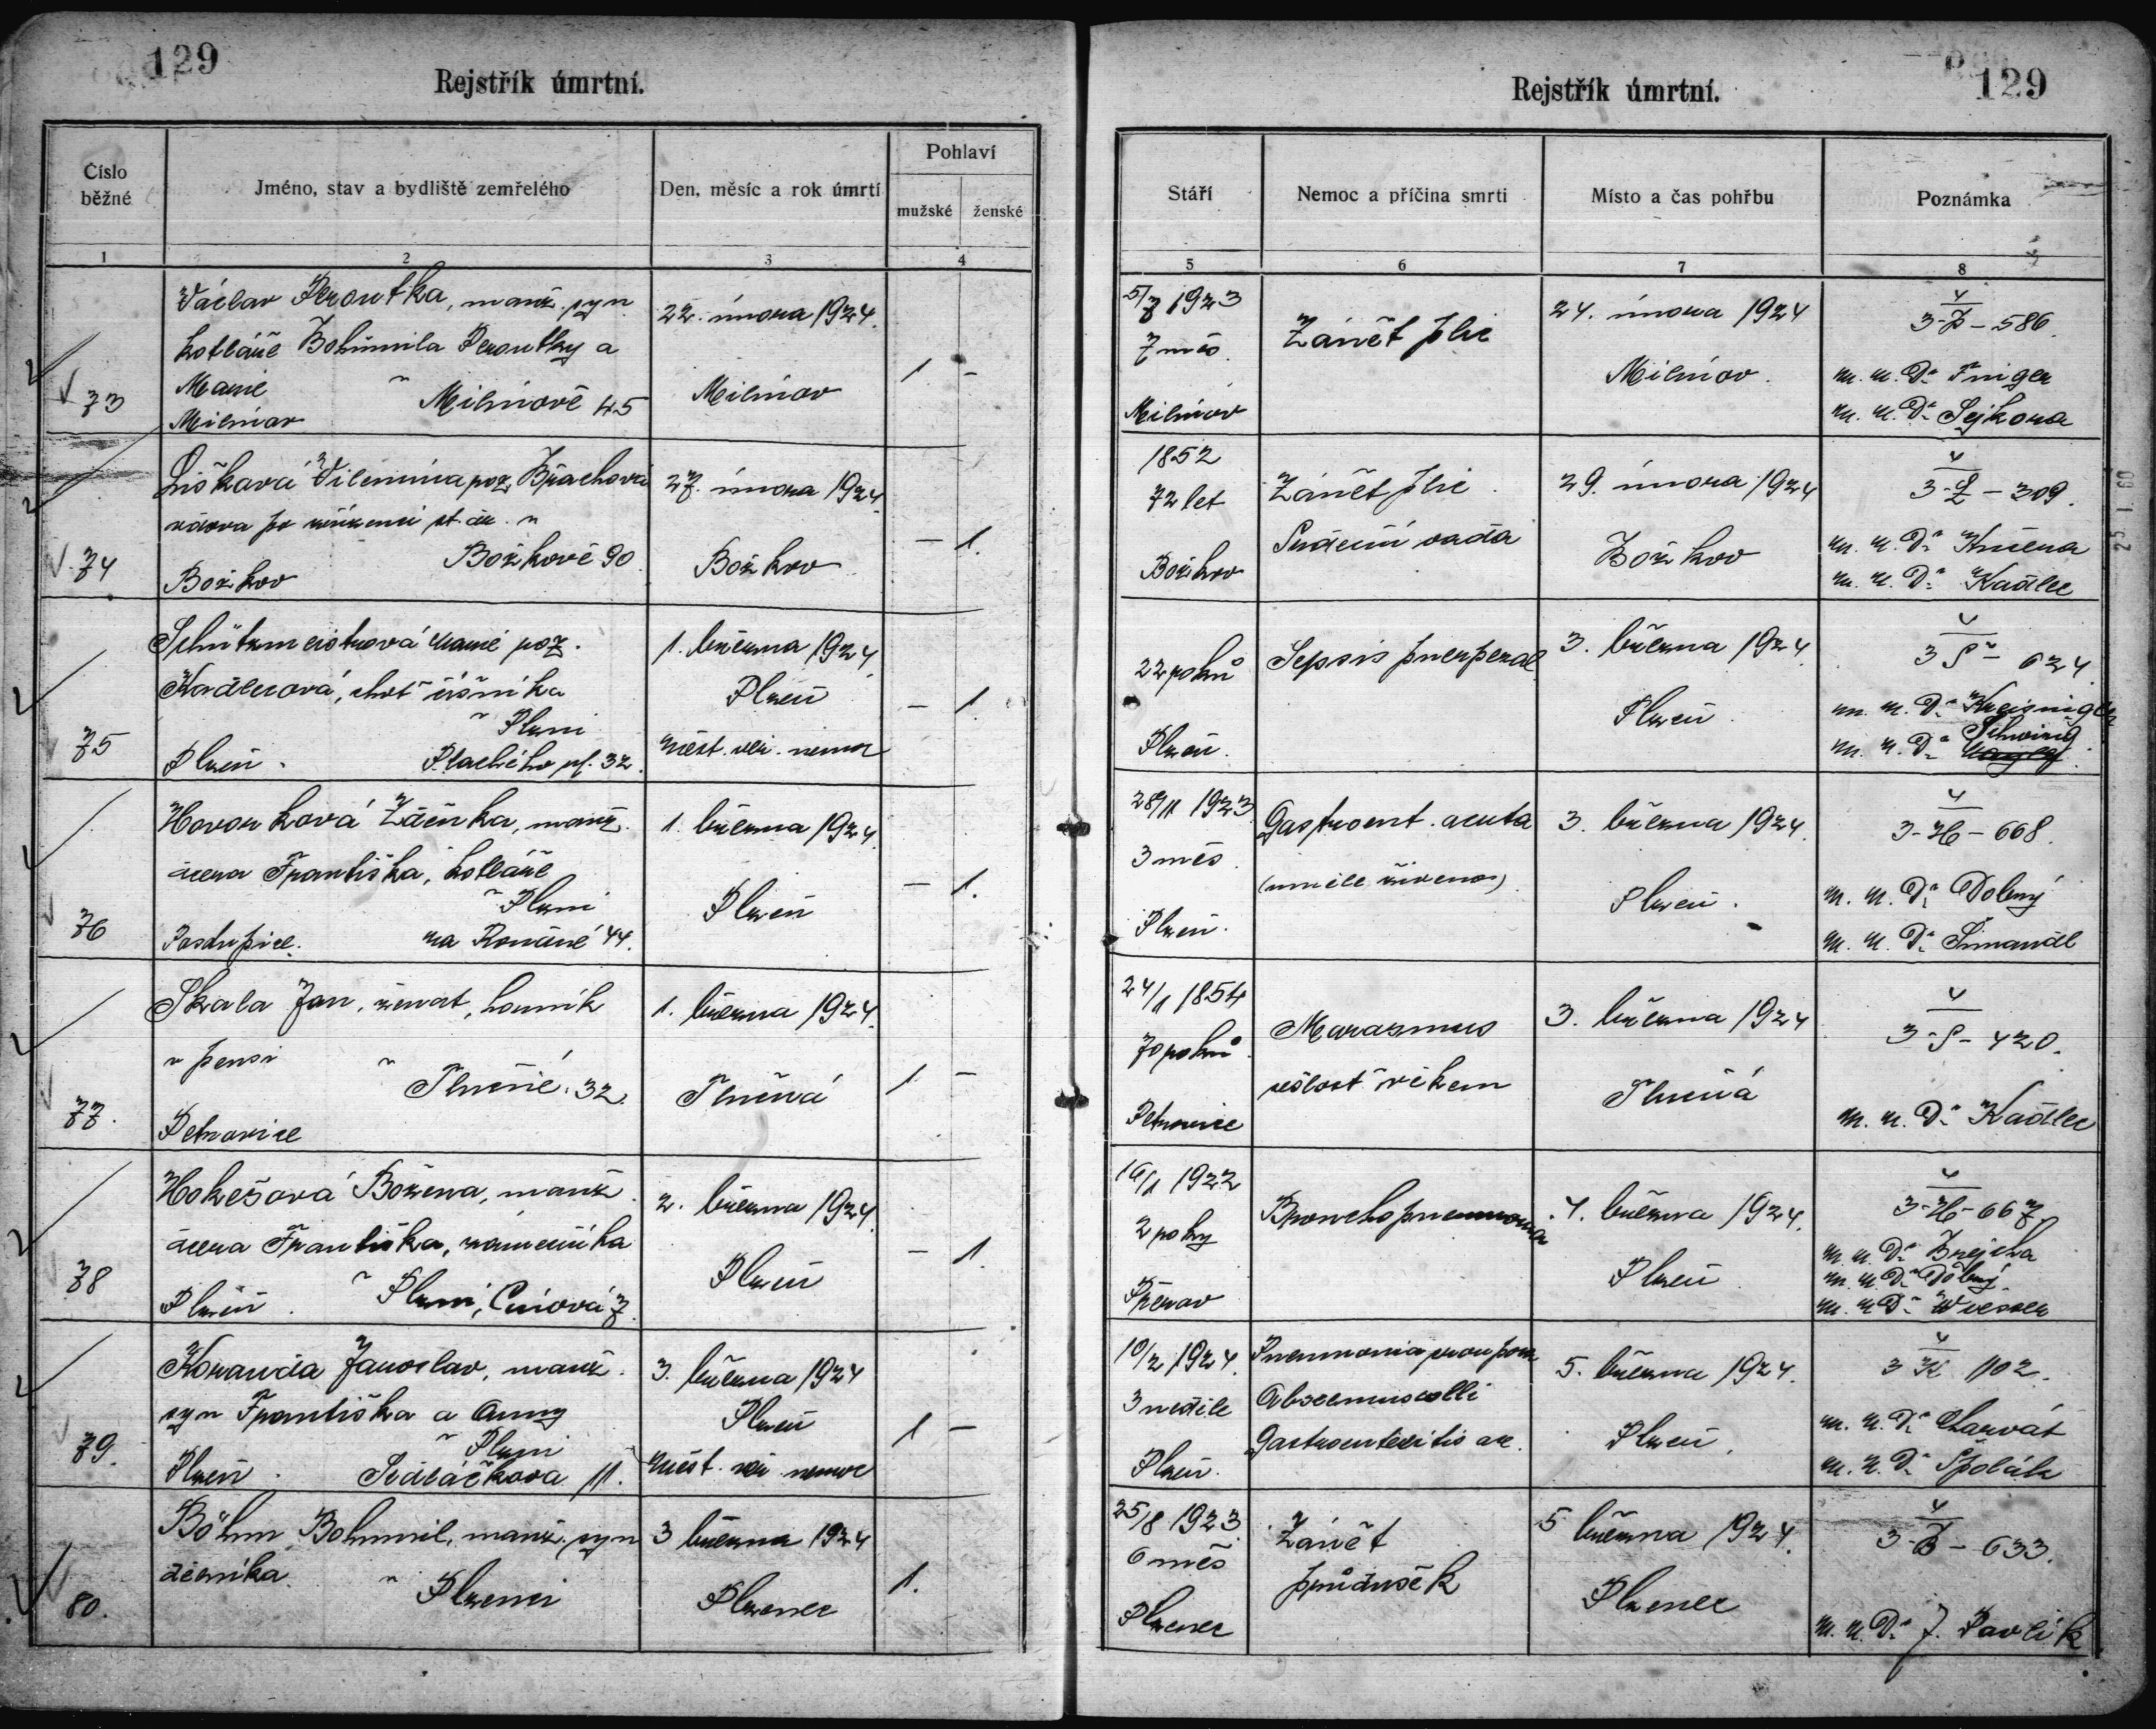 129
Rejstřík úmrtní.
Číslo běžné
Jméno, stav a bydliště zemřelého
Den, měsíc a rok úmrtí
Pohlaví
mužské
ženské
1
2
3
4
73
Václav Peroutka, manž. syn
kotláře Bohumila Peroutky a
Marie
v Milínově 45
Milínov
22. února 1924.
Milínov
1 -
74
Lišková Vilemína poz.
vdova po zřízenci st. dr. v
Božkově 90
Božkov
27. února 1924
Božkov
- 1.
75
Schützmeistrová Marie poz.
Kadlecová, choť číšníka
v Plzni
Plzeň. Plachého ul. 32.
1. března 1924
Plzeň
měst. vš. nemoc
- 1.
76
Hovorková Zdeňka, manž.
dcera Františka, kotláře
v Plzni
na Roudné 44.
1. března 1924.
Plzeň
- 1.
77.
Skala Jan, ženat, horník
v pensi
v Tlučné 32.
Petrovice
1. března 1924.
Tlučná
1 -
78
Hokešová Božena, manž.
dcera Františka, kameníka
Plzeň. v Plzni, 7.
2. března 1924.
Plzeň
- 1.
79.
Koranda Jaroslav, manž.
syn Františka a Anny
v Plzni
Plzeň. Sedláčkova 11.
3. března 1924
Plzeň
měst. vš. nemoc
1 -
80.
Böhm Bohumil, manž. syn
dělníka
v Plzenci
3 března 1924
Plzenec
1.
Rejstřík úmrtní.
129
Stáří
Nemoc a příčina smrti
Místo a čas pohřbu
Poznámka
5
6
7
8
5/7 1923
7 měs.
Milínov
Zánět plic
24. února 1924
Milínov.
4
3-P-586.
m. u. Dr. Finger
m. u. Dr. Sejkora
1852
72 let
Božkov
Zánět plic.
Srdeční vada
29. února 1924
Božkov
4
3-L-309.
m. u. Dr. Kučera
m. u. Dr. Kadlec
22 roků
Plzeň.
Sepsis puerperal
3. března 1924.
Plzeň.
4
3 S - 624.
m. u. Dr. Kreisinger
Schwing
m. u. Dr.
28/11 1923.
3 měs.
Plzeň.
Gastroent. acuta
(uměle živenos)
3. března 1924.
Plzeň.
4
3-H-668.
m. u. Dr. Dolený
m. u. Dr. Šimandl
24/1 1854
70 roků.
Petrovice
Marasmus
sešlost věkem
3. března 1924
Tlučná
4
3-S-420.
m. u. Dr. Kadlec
16/1 1922
2 roky
Přerov
Bronchopneumonia
4. března 1924.
Plzeň.
4
3-H-667.
m. u. Dr. Brejcha
m. u. Dr. Dolený
m. u. Dr. Wiesner
10/2 1924.
3 neděle
Plzeň.
Pneumonia
Gastroenteritis ac.
5. března 1924.
Plzeň.
4
3 K 102.
m. u. Dr. Charvát
m. u. Dr. Špolák
25/8 1923.
6 měs
Plzenec
Zánět
průdušek
5 března 1924.
Plzenec
4
3-B-633.
m. u. Dr. J. Pavlík
25.1.60